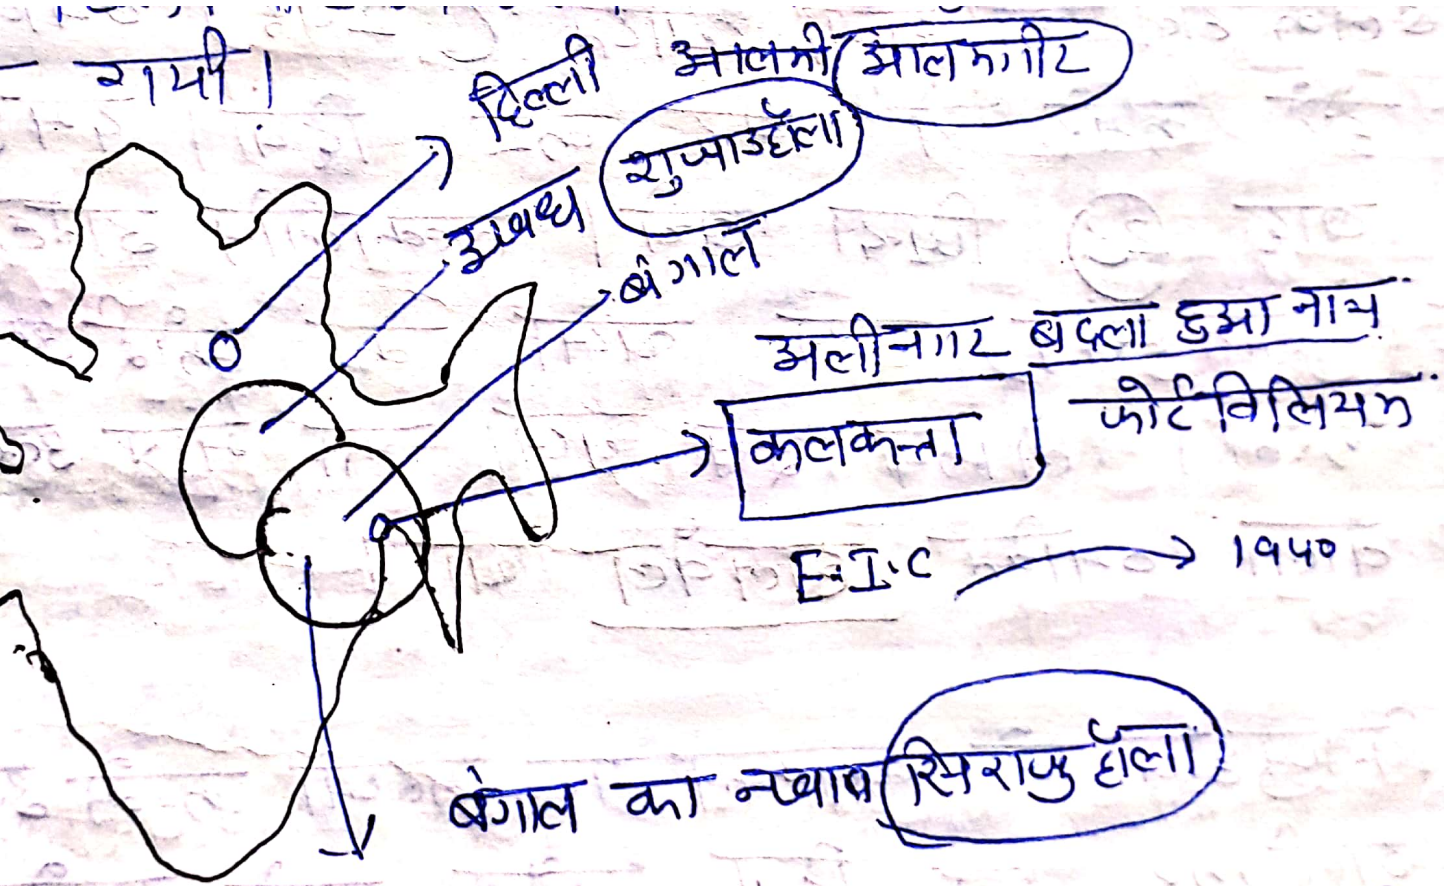 गयी।
दिल्ली आलमी आलमगीर
अवध शुजाउद्दौला
बंगाल
अलीनगर बदला हुआ नाम
कलकत्ता फोर्ट विलियम
E.I.C → 1940
बंगाल का नवाब सिराजुद्दौला